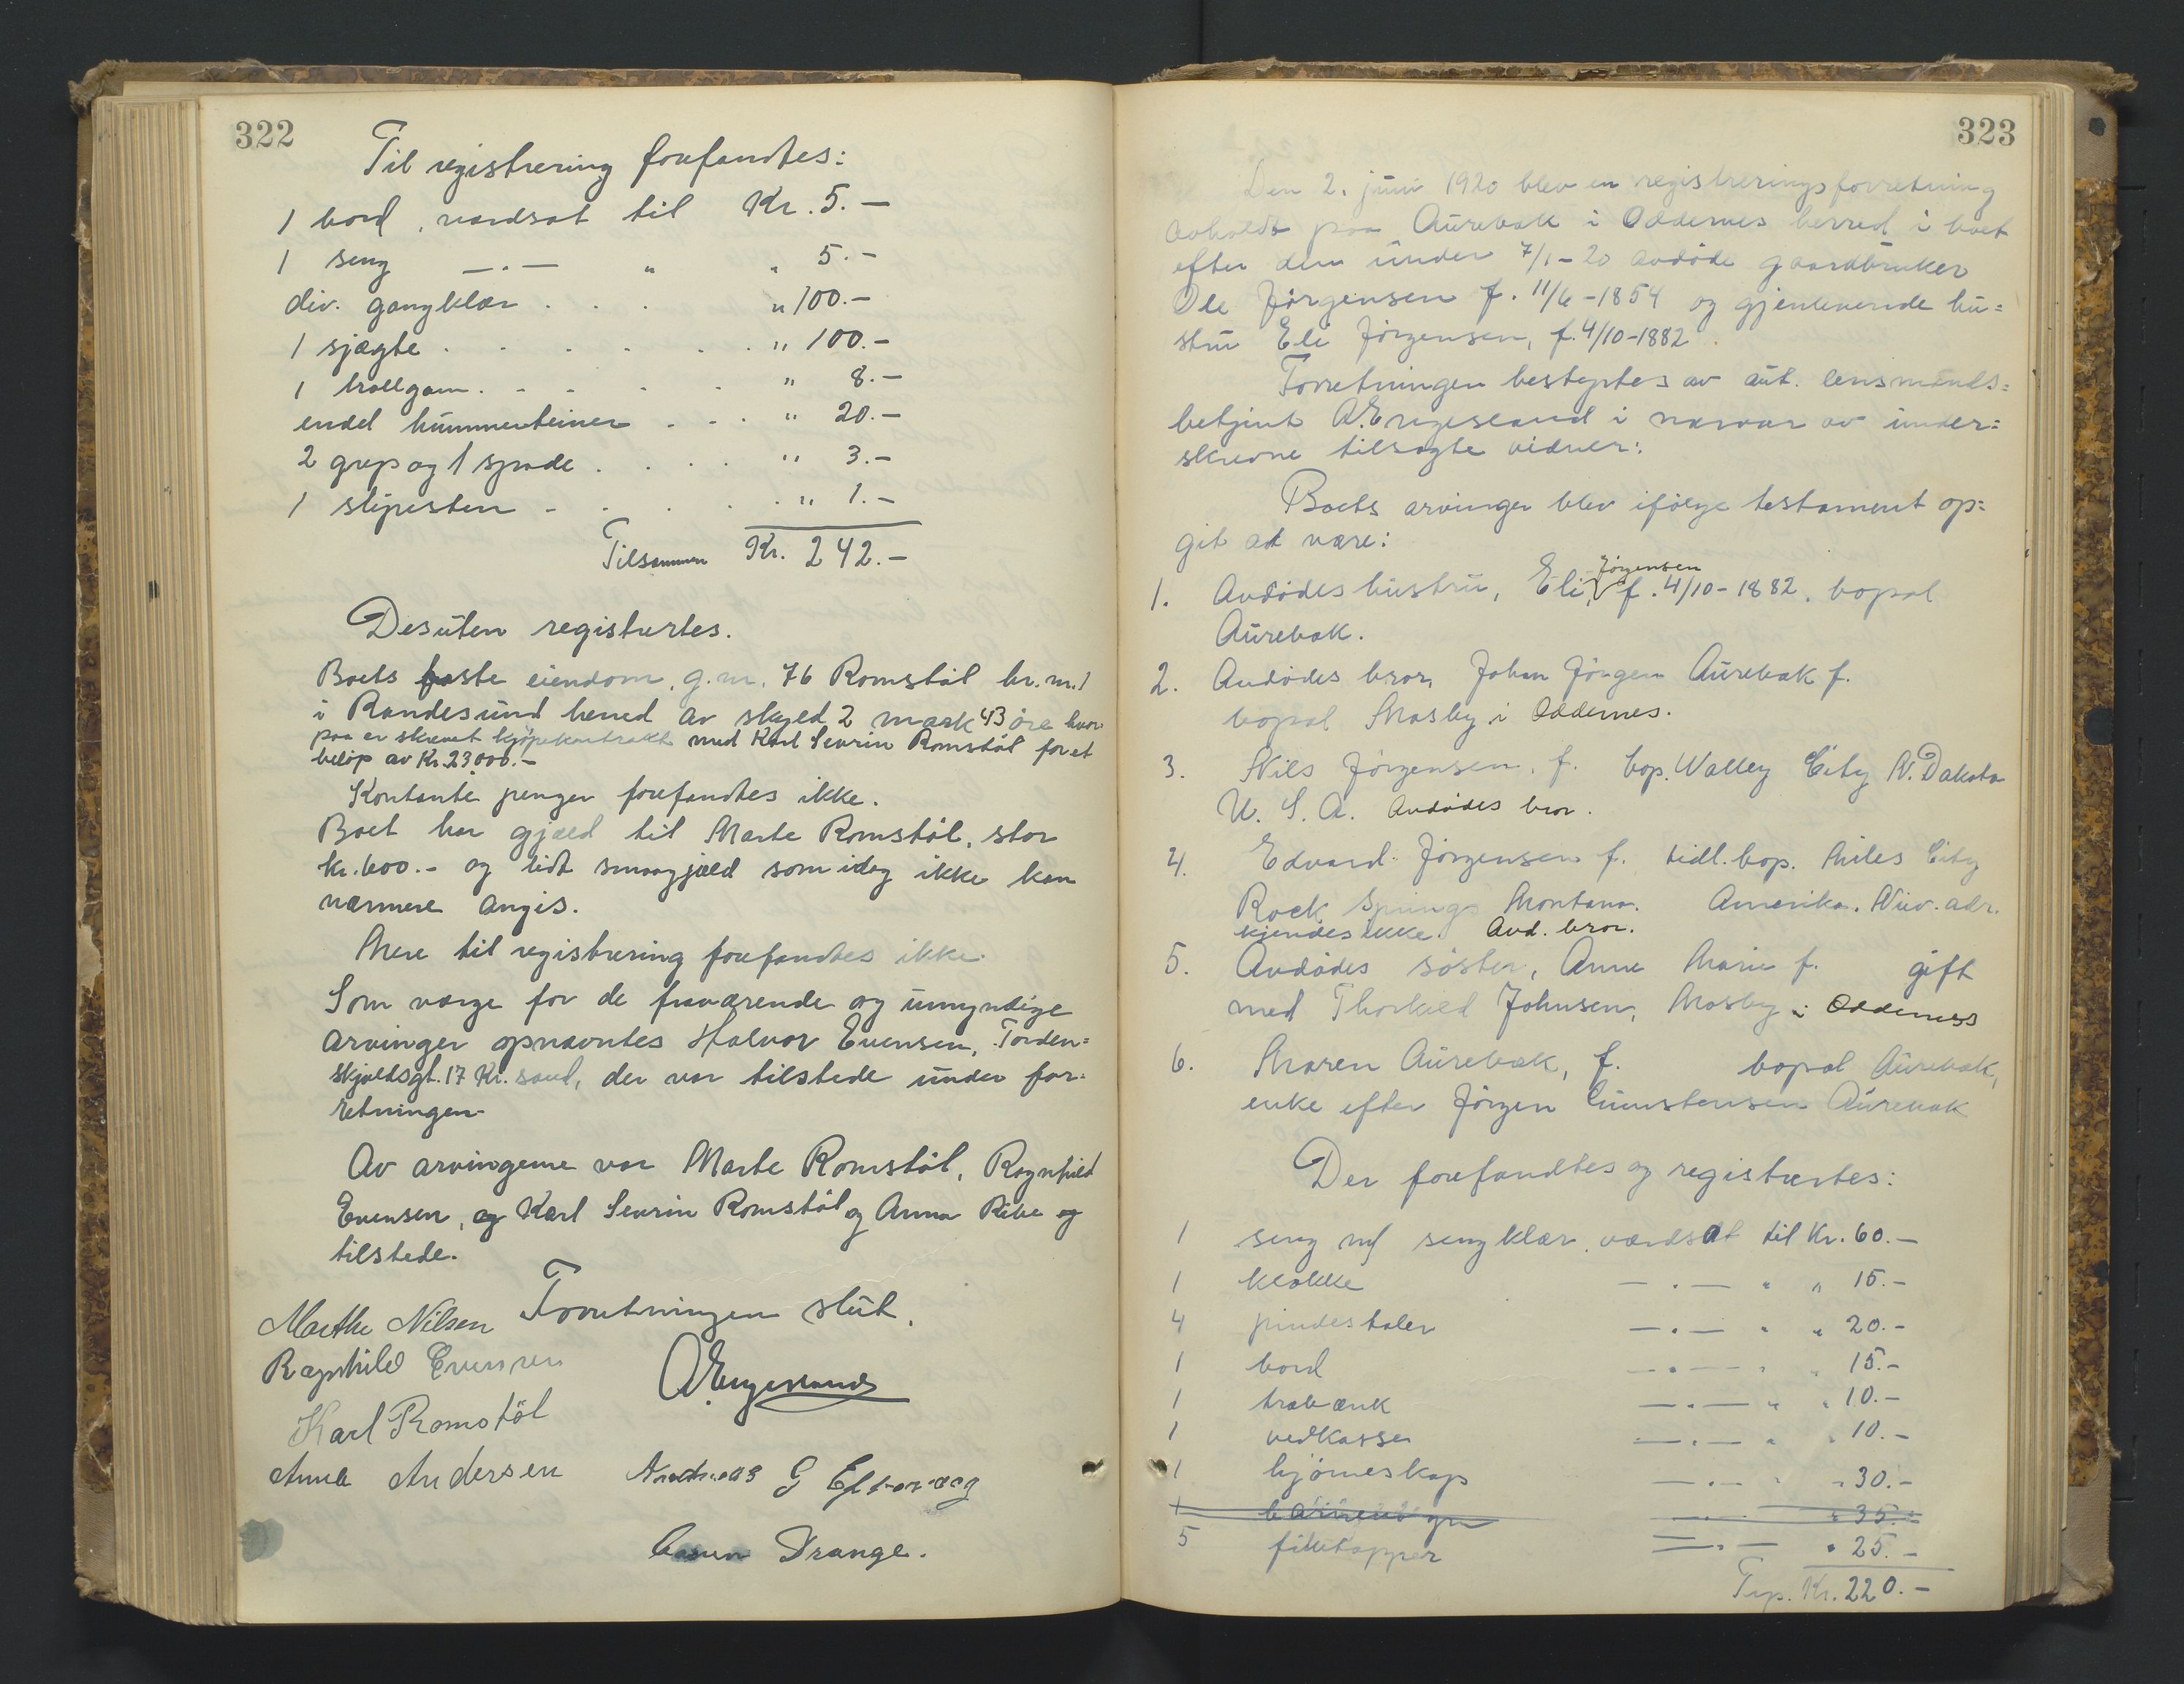 322
Til registrering forefandtes:
1 bord, værdsat til Kr. 5.-
1 seng —"— " " 5.-
div. gangklær . . . " 100.-
1 sjægte . . . . . . " 100.-
1 trollgarn . . . . . " 8.-
endel hummerteiner . . . " 20.-
2 grep og 1 spade . . . . " 3.-
1 slipesten . . . . . " 1.-
Tilsammen Kr. 242.-
Desuten registrertes.
Boets faste eiendom, g.nr. 76 Romstøl br.nr. 1
i Randesund herred av skyld 2 mark 43 øre hvor
paa er skrevet kjøpekontrakt med Karl Sevrin Romstøl for et
beløp av Kr. 23000.-
Kontante penger forefandtes ikke.
Boet har gjæld til Marte Romstøl, stor
kr. 600.- og lidt smaagjæld som idag ikke kan
nærmere angis.
Mere til registrering forefandtes ikke.
Som værge for de fraværende og umyndige
arvinger opnævntes Halvor Evensen, Torden=
skjoldsgt. 17 Kr.sand, der var tilstede under for=
retningen.
Av arvingerne var Marte Romstøl, Ragnhild
Evensen, og Karl Sevrin Romstøl og Anna Ribe og
tilstede.
Forretningen slut.
Marthe Nilsen
Ragnhild Evensen
A. Engesland
Karl Romstøl
Anna Andersen
Andreas G
Drange.
323
Den 2. juni 1920 blev en registreringsforretning
avholdt paa Aurebæk i Oddernes herred i boet
efter den under 7/1-20 avdøde gaardbruker
Ole Jørgensen f. 11/6-1854 og gjenlevende hu=
stru Eli Jørgensen, f. 4/10-1882.
Forretningen bestyrtes av aut. lensmands=
betjent A. Engesland i nærvær av under=
skrevne tilsagte vidner:
Boets arvinger blev ifølge testament op=
git at være:
Jørgensen
1. Avdødes hustru, Eli, f. 4/10-1882, bopæl
Aurebæk.
2. Avdødes bror, Johan Jørgen Aurebæk f.
bopæl Mosby i Oddernes.
3. Nils Jørgensen, f. bop. Walley City N. Dakota
U. S. A. Avdødes bror.
4. Edvard Jørgensen f. tidl. bop. Miles City
Rock Springs Montana. Amerika. Nuv. adr.
kjendes ikke. Avd. bror.
5. Avdødes søster, Anne Marie f. gift
med Thorkild Johnsen, Mosby i Oddernes
6. Maren Aurebæk, f. bopæl Aurebæk,
enke efter Jørgen Aurebæk
Der forefandtes og registrertes:
1 seng m/ sengklær værdsat til Kr. 60.-
1 klokke —"— " " 15.-
4 pindestoler —"— " " 20.-
1 bord —"— " " 15.-
1 træbænk —"— " " 10.-
1 vedkasse —"— " " 10.-
1 hjørneskap —"— " " 30.-
1 " 35.-
5 filletepper —"— " 25.-
Trp. Kr. 220.-